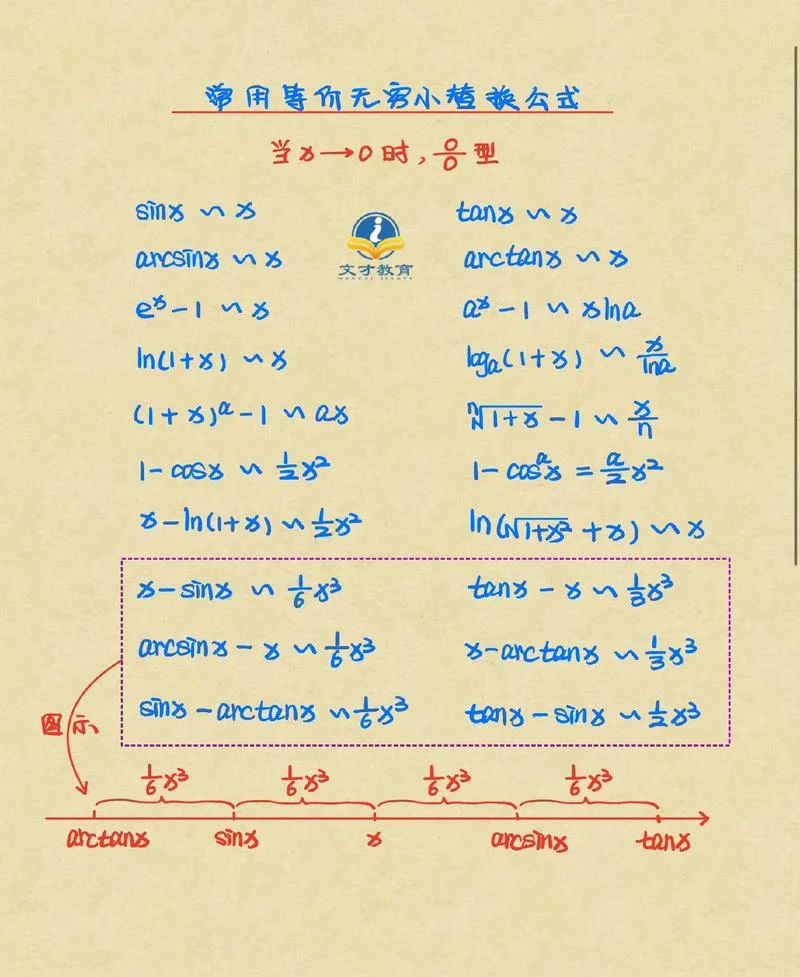 常用等价无穷小替换公式
当 x → 0 时, 0/0 型
sinx ~ x    tanx ~ x
文才教育
WENCAI JIAOYU
arcsinx ~ x    arctanx ~ x
eˣ - 1 ~ x    aˣ - 1 ~ xlna
ln(1+x) ~ x    logₐ(1+x) ~ x/lna
(1+x)ᵃ - 1 ~ ax    ⁿ√(1+x) - 1 ~ x/n
1 - cosx ~ 1/2 x²    1 - cosᵃx = a/2 x²
x - ln(1+x) ~ 1/2 x²    ln(√(1+x²) + x) ~ x
x - sinx ~ 1/6 x³    tanx - x ~ 1/3 x³
arcsinx - x ~ 1/6 x³    x - arctanx ~ 1/3 x³
sinx - arctanx ~ 1/6 x³    tanx - sinx ~ 1/2 x³
图示
1/6 x³    1/6 x³    1/6 x³    1/6 x³
arctanx    sinx    x    arcsinx    tanx